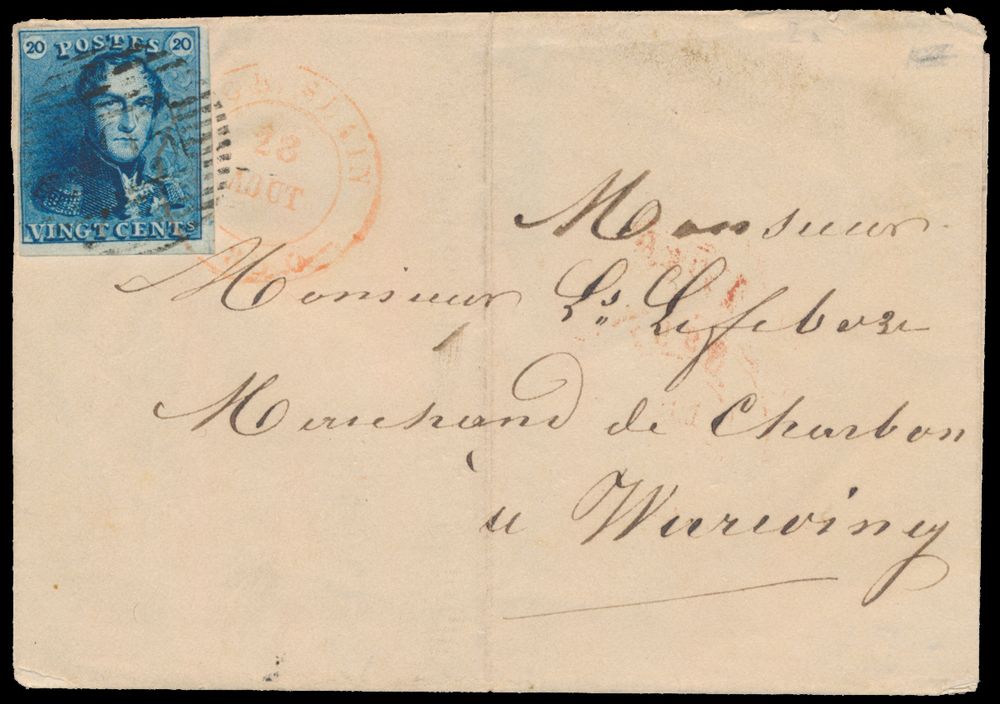 20 POSTES 20
VINGT CENTS
28
AOUT
Monsieur
Monsieur Ls. Lefebvre
Marchand de Charbon
a Warwincq